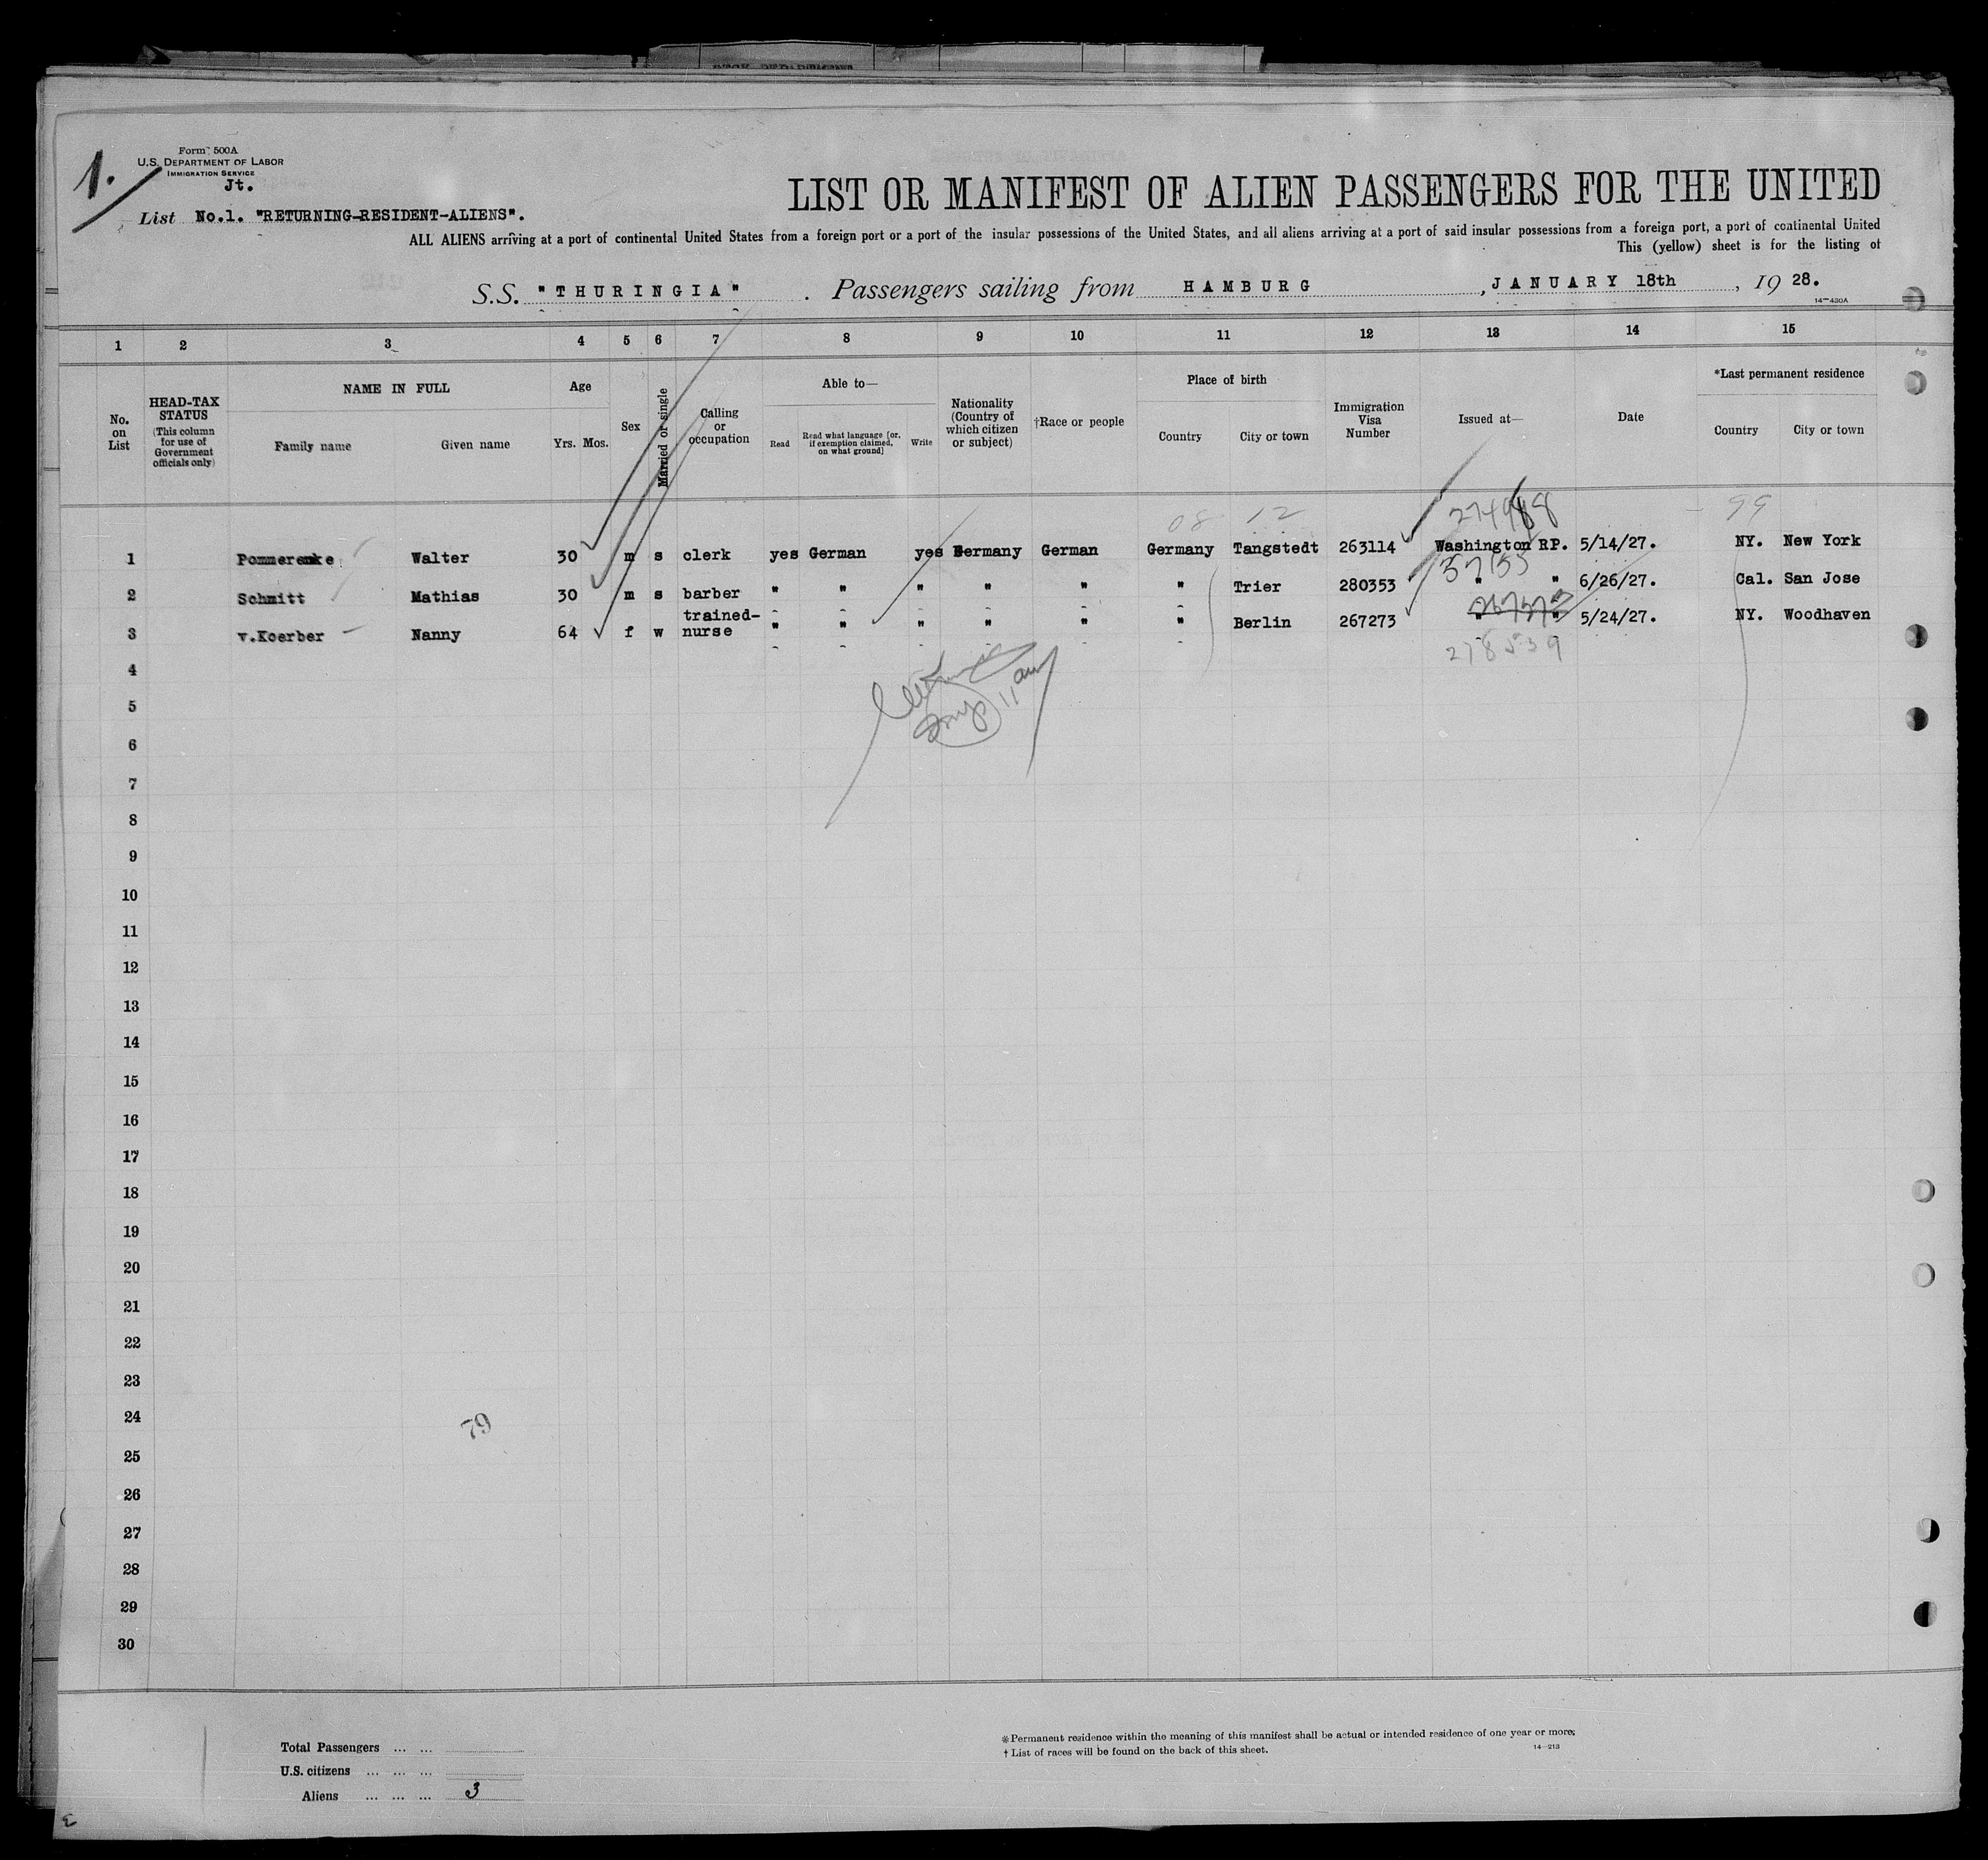 1.
Form 500A
U.S. DEPARTMENT OF LABOR
IMMIGRATION SERVICE
Jt.
List No.1. "RETURNING-RESIDENT-ALIENS".
LIST OR MANIFEST OF ALIEN PASSENGERS FOR THE UNITED
ALL ALIENS arriving at a port of continental United States from a foreign port or a port of the insular possessions of the United States, and all aliens arriving at a port of said insular possessions from a foreign port, a port of continental United
This (yellow) sheet is for the listing of
S.S. "THURINGIA". Passengers sailing from HAMBURG, JANUARY 18th, 1928.
14—430A
1 2 3 4 5 6 7 8 9 10 11 12 13 14 15
No. on List
HEAD-TAX STATUS (This column for use of Government officials only)
NAME IN FULL
Family name Given name
Age
Yrs. Mos.
Sex
Married or single
Calling or occupation
Able to—
Read
Read what language [or, if exemption claimed, on what ground]
Write
Nationality (Country of which citizen or subject)
†Race or people
Place of birth
Country City or town
Immigration Visa Number
Issued at—
Date
*Last permanent residence
Country City or town
08 12 274988 99
1 Pommerenke Walter 30 m s clerk yes German yes Germany German Germany Tangstedt 263114 Washington RP. 5/14/27. NY. New York
2 Schmitt Mathias 30 m s barber " " " " " " Trier 280353 " " 6/26/27. Cal. San Jose
3 v.Koerber Nanny 64 f w trained-nurse " " " " " " Berlin 267273 " " 5/24/27. NY. Woodhaven
278539
11 am
4
5
6
7
8
9
10
11
12
13
14
15
16
17
18
19
20
21
22
23
24
79
25
26
27
28
29
30
Total Passengers ... ...
U.S. citizens ... ... ...
Aliens ... ... ... 3
* Permanent residence within the meaning of this manifest shall be actual or intended residence of one year or more.
† List of races will be found on the back of this sheet.
14—213